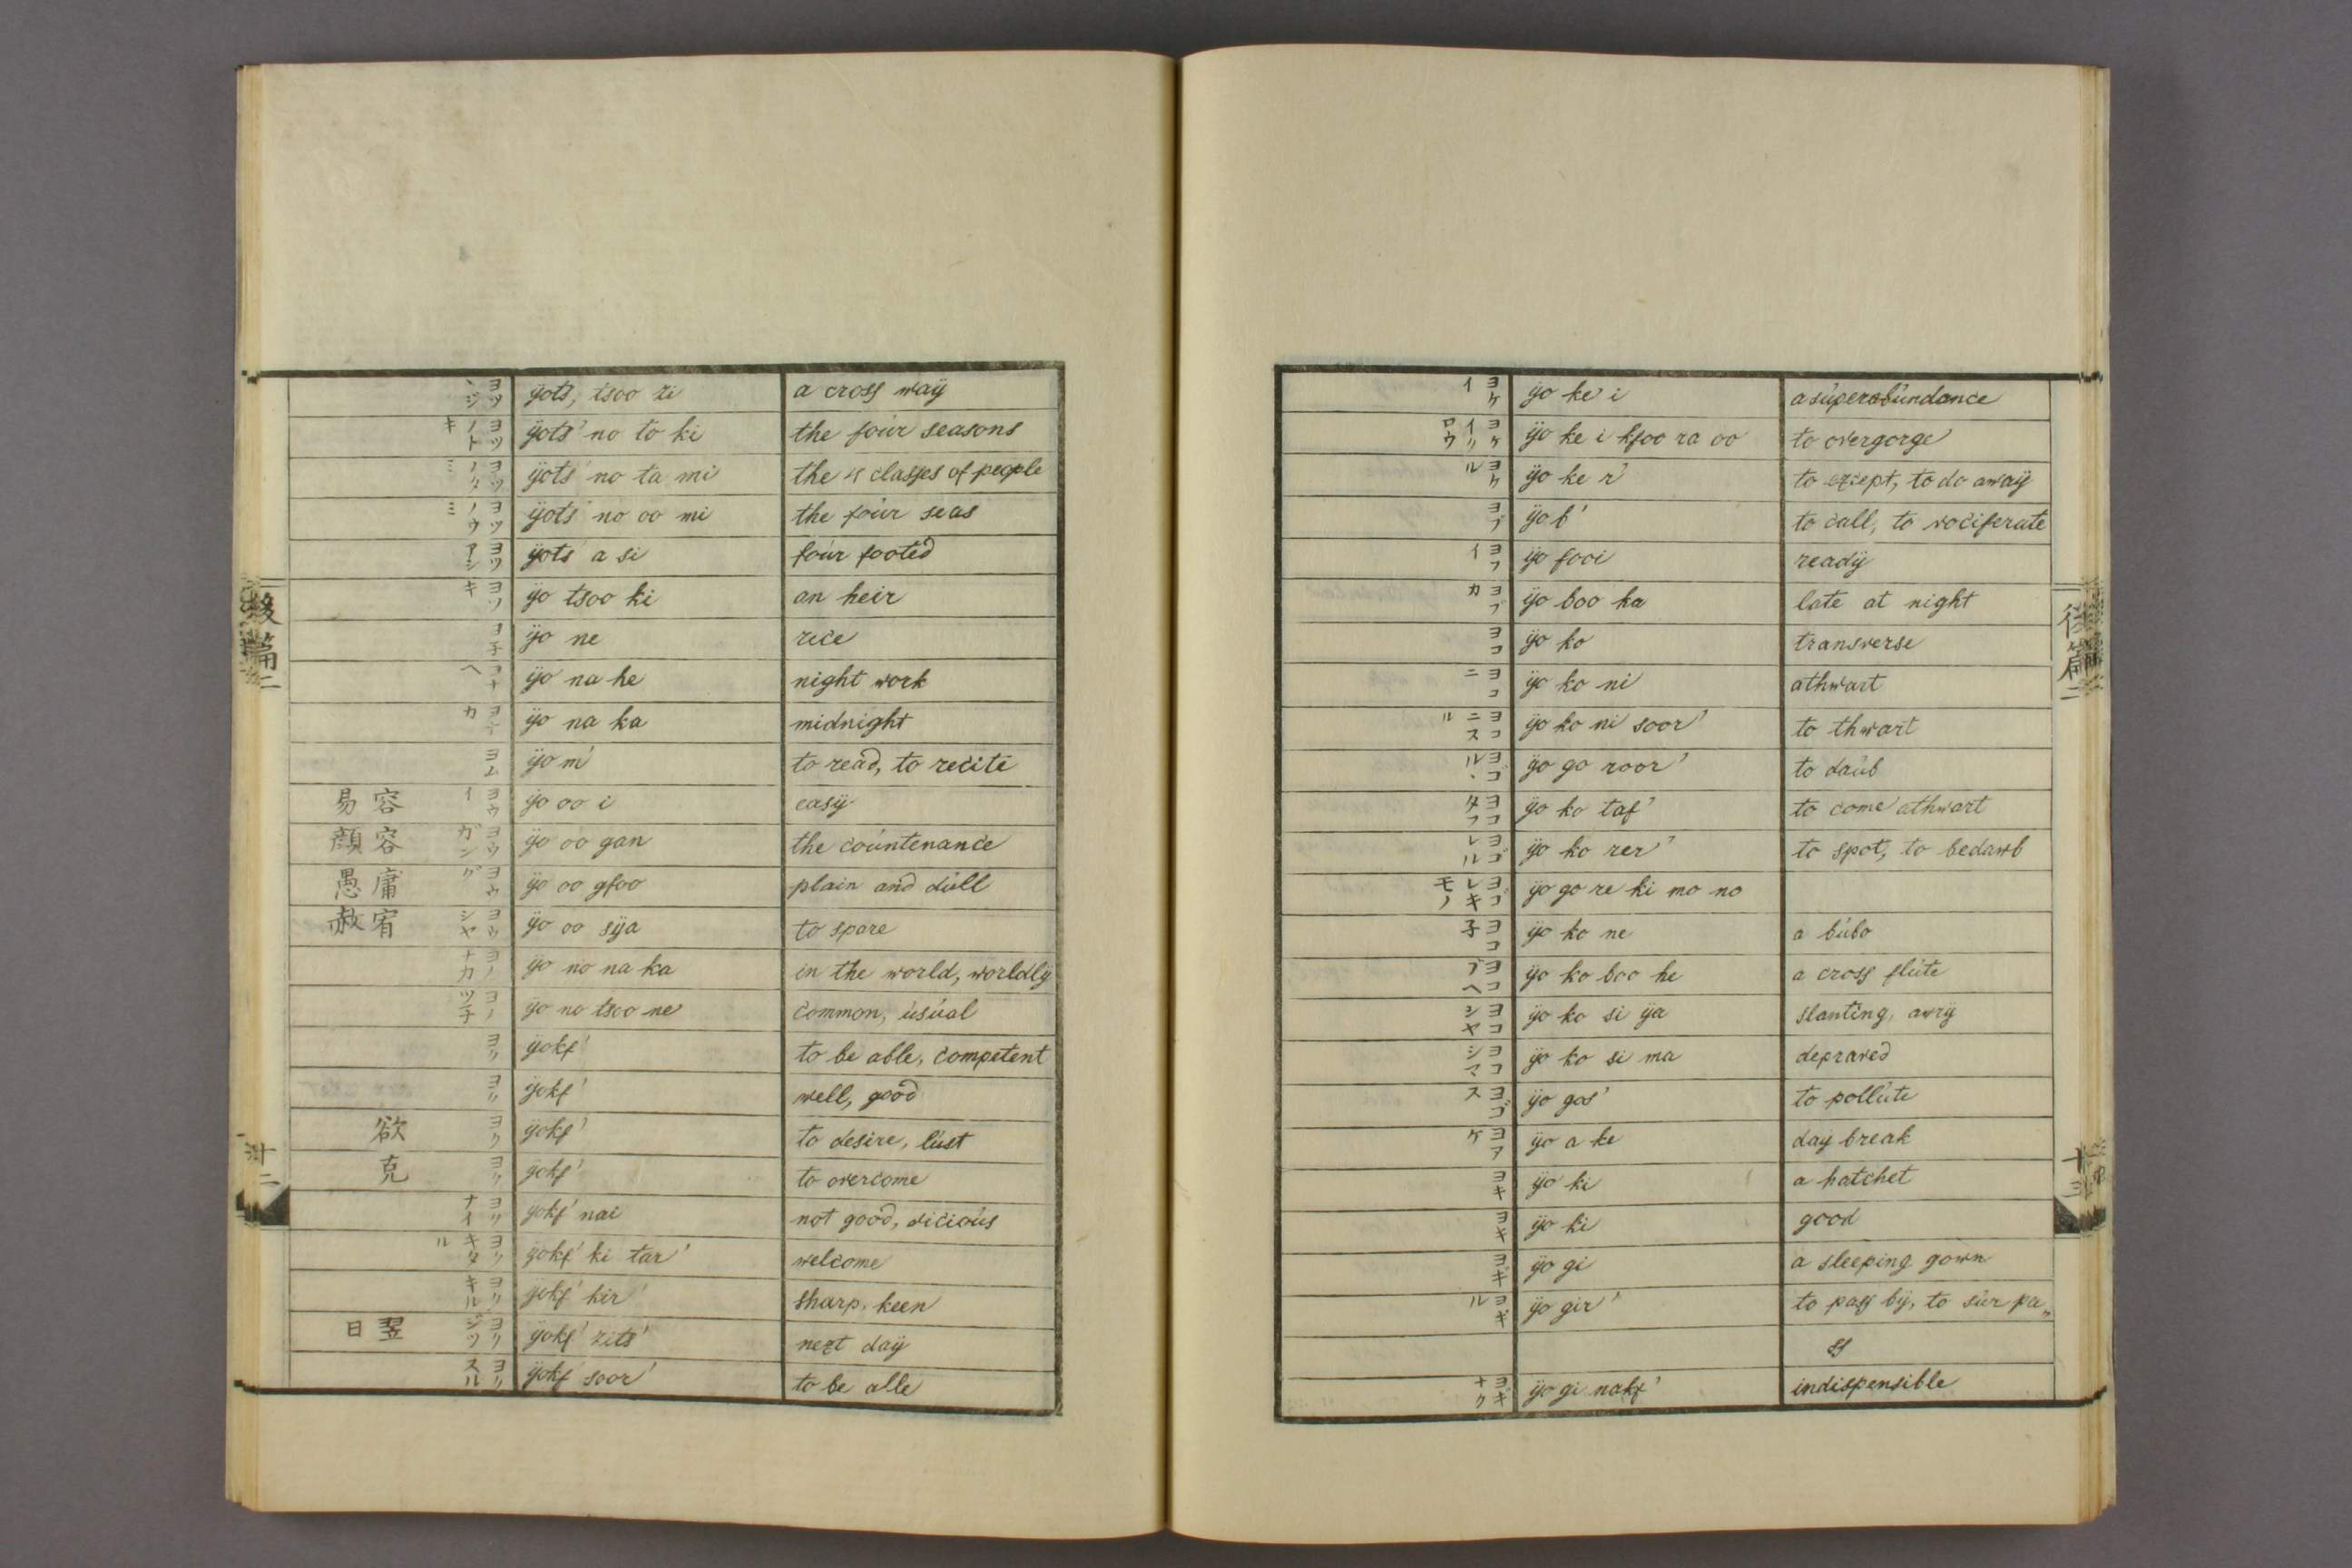 ヨツヽジ ÿots, tsoo zi a cross waÿ
ヨツノトキ ÿots' no to ki the foúr seasons
ヨツノタミ ÿots' no ta mi the 4 classes of people
ヨツノウミ ÿots' no oo mi the foúr seas
ヨツアシ ÿots' a si foúr footed
ヨツキ ÿo tsoo ki an heir
ヨ子 ÿo ne rice
ヨナヘ ÿo na he night work
ヨナカ ÿo na ka midnight
ヨム ÿo m' to read, to recite
容易 ヨウイ ÿo oo i easÿ
容顔 ヨウガン ÿo oo gan the coúntenance
庸愚 ヨウグ ÿo oo gfoo plain and dúll
宥赦 ヨウシヤ ÿo oo sÿa to spare
ヨノナカ ÿo no na ka in the world, worldlÿ
ヨノツ子 ÿo no tsoo ne common, úsúal
ヨク ÿokf' to be able, competent
ヨク ÿokf' well, good
欲 ヨク ÿokf' to desire, lúst
克 ヨク ÿokf' to overcome
ヨクナイ ÿokf' nai not good, vicioús
ヨクキタル ÿokf' ki tar' welcome
ヨクキル ÿokf' kir' sharp, keen
翌日 ヨクジツ ÿokf' zits' next daÿ
ヨクスル ÿokf' soor' to be able
後篇二
十二
ヨケイ ÿo ke i a súperabúndance
ヨケイクロウ ÿo ke i kfoo ra oo to overgorge
ヨケル ÿo ke r' to except, to do awaÿ
ヨブ ÿo b' to call, to vociferate
ヨフイ ÿo fooi readÿ
ヨブカ ÿo boo ka late at night
ヨコ ÿo ko transverse
ヨコニ ÿo ko ni athwart
ヨコニスル ÿo ko ni soor' to thwart
ヨゴヽル ÿo go roor' to daúb
ヨコタフ ÿo ko taf' to come athwart
ヨゴレル ÿo ko rer' to spot, to bedawb
ヨゴレキモノ ÿo go re ki mo no
ヨコ子 ÿo ko ne a búbo
ヨコブヘ ÿo ko boo he a cross flúte
ヨコシヤ ÿo ko si ÿa slanting, awrÿ
ヨコシマ ÿo ko si ma depraved
ヨゴス ÿo gos' to pollúte
ヨアケ ÿo a ke daÿ break
ヨキ ÿo ki a hatchet
ヨキ ÿo ki good
ヨギ ÿo gi a sleeping gown
ヨギル ÿo gir' to pass bÿ, to súr pa„
ss
ヨギナク ÿo gi nakf' indispensible
後篇二
十三